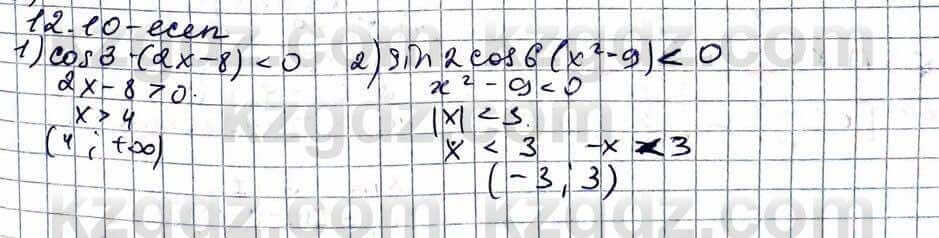 12.10-есеп
1) cos 3 · (2x-8) < 0   2) sin 2 cos 6 (x²-9) < 0
2x-8 > 0.   x² - 9 < 0
x > 4   |x| < 3.
(4 ; +∞)   x < 3   -x < 3
(-3 ; 3)
kzgdz.com